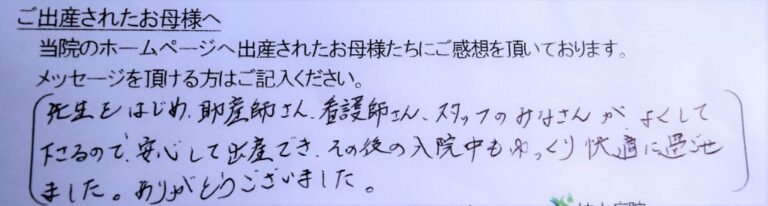 ご出産されたお母様へ
当院のホームページへ出産されたお母様たちにご感想を頂いております。
メッセージを頂ける方はご記入ください。
先生をはじめ、助産師さん、看護師さん、スタッフのみなさんがよくして
下さるので、安心して出産でき、その後の入院中もゆっくり快適に過ごせ
ました。ありがとうございました。